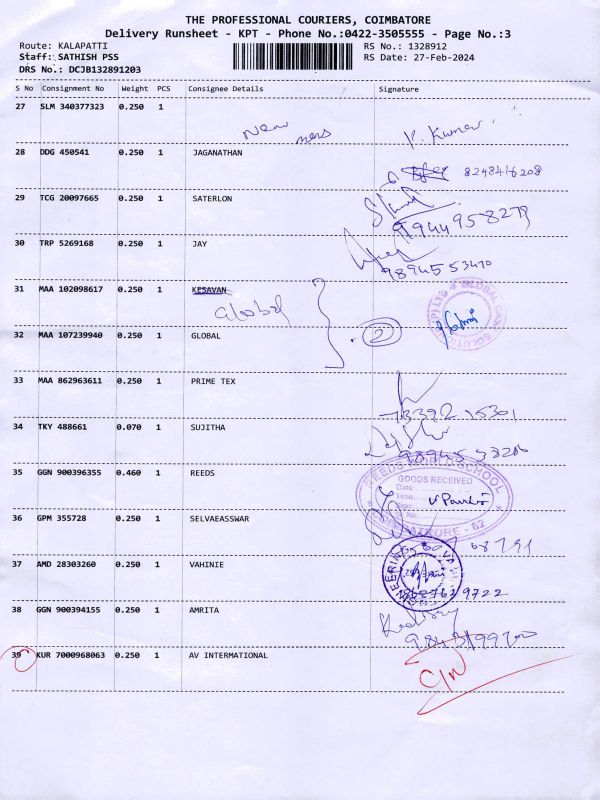 THE PROFESSIONAL COURIERS, COIMBATORE
Delivery Runsheet - KPT - Phone No.:0422-3505555 - Page No.:3
Route: KALAPATTI RS No.: 1328912
Staff: SATHISH PSS RS Date: 27-Feb-2024
DRS No.: DCJB132891203
S No Consignment No Weight PCS Consignee Details Signature
27 SLM 340377323 0.250 1
New P. Kumar
28 DDG 450541 0.250 1 JAGANATHAN
8248416208
29 TCG 20097665 0.250 1 SATERLON
99944958279
30 TRP 5269168 0.250 1 JAY
9894553470
31 MAA 102098617 0.250 1 KESAVAN
Global
32 MAA 107239940 0.250 1 GLOBAL
2
33 MAA 862963611 0.250 1 PRIME TEX
73392 15301
34 TKY 488661 0.070 1 SUJITHA
35 GGN 900396355 0.460 1 REEDS
REEDS WORLD SCHOOL
GOODS RECEIVED
Date
Time
Sign
No.
COIMBATORE - 62
36 GPM 355728 0.250 1 SELVAEASSWAR
37 AMD 28303260 0.250 1 VAHINIE
38 GGN 900394155 0.250 1 AMRITA
39 KUR 7000968063 0.250 1 AV INTERMATIONAL
C/N